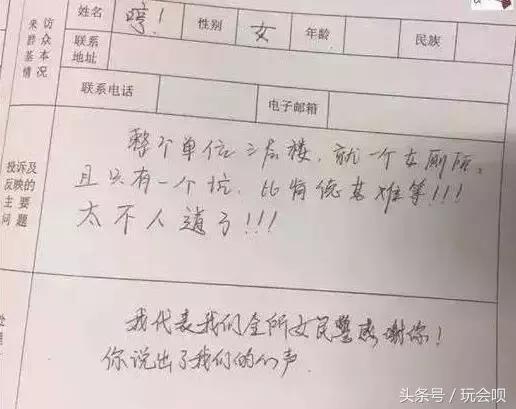 来访群众基本情况
姓名 哼! 性别 女 年龄 民族
联系地址
联系电话 电子邮箱
投诉及反映的主要问题
整个单位三层楼,就一个女厕所,
且只有一个坑,比特债其难等!!!
太不人道了!!!
我代表我们全所女民警感谢你!
你说出了我们的心声.
头条号/玩会呗